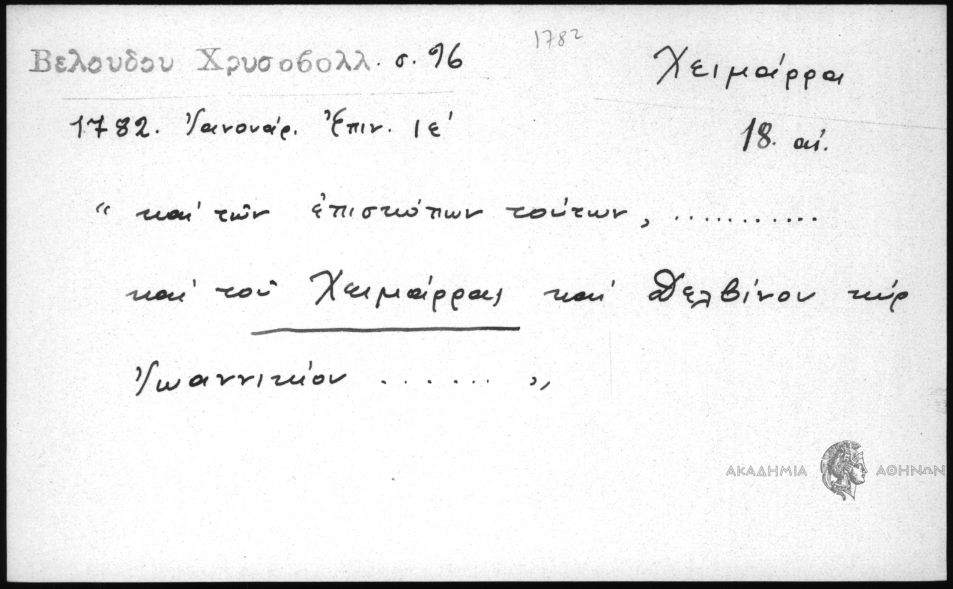 1782
Βελουδου Χρυσοβολλ. σ. 96
Χειμάρρα
1782. Ἰανουάρ. Ἐπιν. ιε´
18. αἰ.
“ καὶ τῶν ἐπισκόπων τούτων, ...........
καὶ τοῦ Χειμάρρας καὶ Δελβίνου κύρ
Ἰωαννικίου ...... „
ΑΚΑΔΗΜΙΑ ΑΘΗΝΩΝ